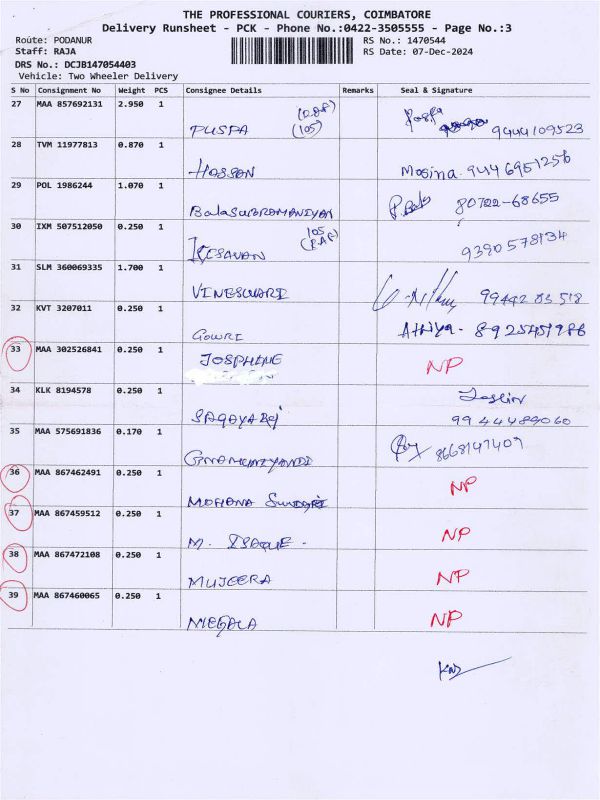 THE PROFESSIONAL COURIERS, COIMBATORE
Delivery Runsheet - PCK - Phone No.:0422-3505555 - Page No.:3
Route: PODANUR RS No.: 1470544
Staff: RAJA RS Date: 07-Dec-2024
DRS No.: DCJB147054403
Vehicle: Two Wheeler Delivery
S No Consignment No Weight PCS Consignee Details Remarks Seal & Signature
27 MAA 857692131 2.950 1
PUSPA (105) 9444109523
28 TVM 11977813 0.870 1
HASSAN Mosina. 9446951256
29 POL 1986244 1.070 1
BalaSUBRAMANIYAN P.Bala 80722-68655
30 IXM 507512050 0.250 1 105
KESAVAN 9390578134
31 SLM 360069335 1.700 1
VINESWARI 99442 83 518
32 KVT 3207011 0.250 1
GOWRI Athiya - 8925451986
33 MAA 302526841 0.250 1
JOSPHINE NP
34 KLK 8194578 0.250 1
SAGAYARaj Joslin
9944489060
35 MAA 575691836 0.170 1
8668147407
36 MAA 867462491 0.250 1
MOHANA SUNDARI NP
37 MAA 867459512 0.250 1
M. ISAQUE. NP
38 MAA 867472108 0.250 1
MUJEERA NP
39 MAA 867460065 0.250 1
MEGALA NP